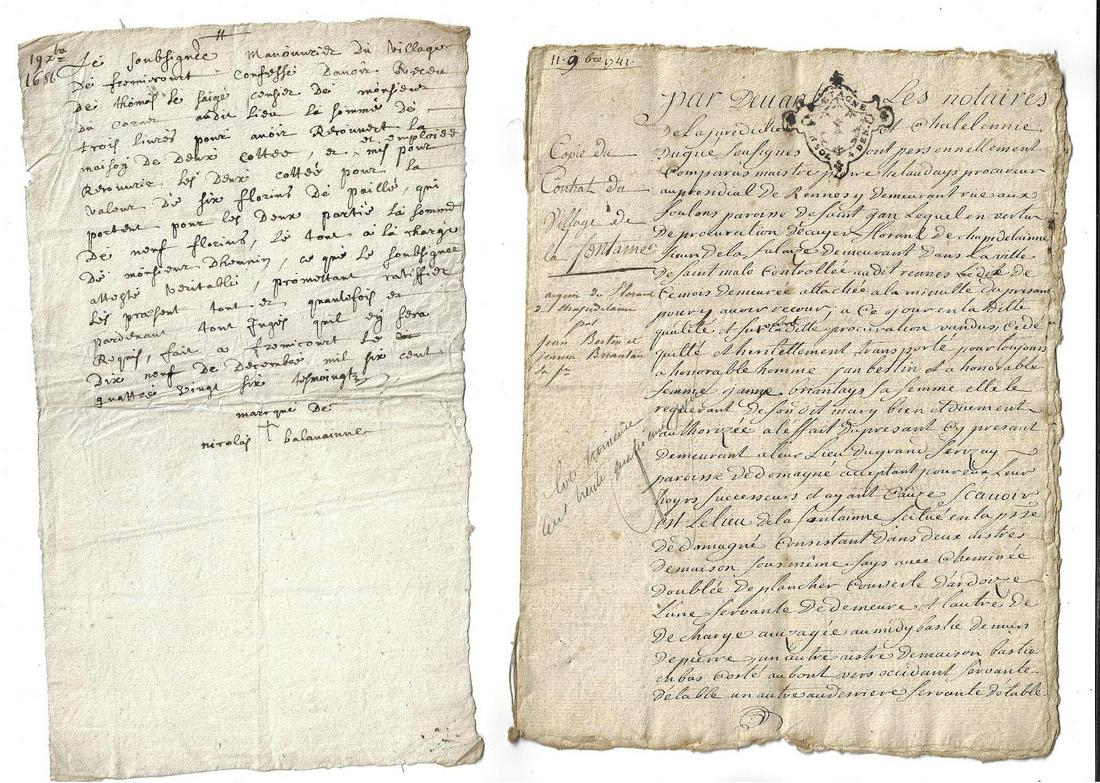 19 xbre
1686
Le soubsignée Manouvrier du village
De fremicourt confesse D'avoir Receu
De thomas le saige censier de monsieur
du Corner audit Lieu La somme de
trois Livres pour avoir Recouvert La
maison de Deux cottée, et et emploiee
Recouvrir Les Deux cottée pour La
valeur De six florins De paille, qui
portent pour les Deux partie La somme
De neuf florins, Le tout à la charge
De monsieur Dhennin ce que Le soubsignee
atteste veritable, promettant ratiffier
Les present tout et quantefois et
pardevant tout Juges quil en sera
Requis, fait a fremicourt Le
Dix neuf De Decembre mil six cent
quattre vingt six tesmoingtz
marcque De
nicolas † balavainne
11 9bre 1741
Copie du
Contrat du
Village de
la fontaine
par
Jean Bertin et
par Devant Les notaires
De la jurediction et Chatelennie
Dugué Sousignes ont personnellement
Comparus maistre pierre helaudays procureur
au presidial de Rennes y demeurant rue aux
foulons paroisse de saint jan Lequel en vertu
de procuration Décuyer florant de chapdelainne
sieur De la Demeurant Dans la ville
De saint malo Controllée audit rennes Le dix de
Ce mois demeurée attachée a la minutte du present
pour y avoir recour, a Ce jour en la ditte
qualité et susditte procuration vandus, Cédé
quitté et heritellement transporté pour toujours
a honorable homme jan bertin et a honorable
femme janne briantays sa femme elle le
requerant De son dit mary bien et Duement
authorizée a l'effait du present Cy present
Demeurant a leur Lieu du grand Servzay
paroisse De domagné acceptant pour eux Leur
hoyrs successeurs et ayant Cauze Scavoir
est Le lieu de la fontainne scitué en la psse
De domagné Consistant Dans deux aistres
De maison sous même fays avec Cheminée
Doublée de plancher Couverte Dardoize
L'une servante De demeure et l'autre de
De charge au midy bastie de murs
De pierre, un autre aistre De maison bastie
en bas Costé au bout vers occidant servante
Détable un autre au derriere servante détable